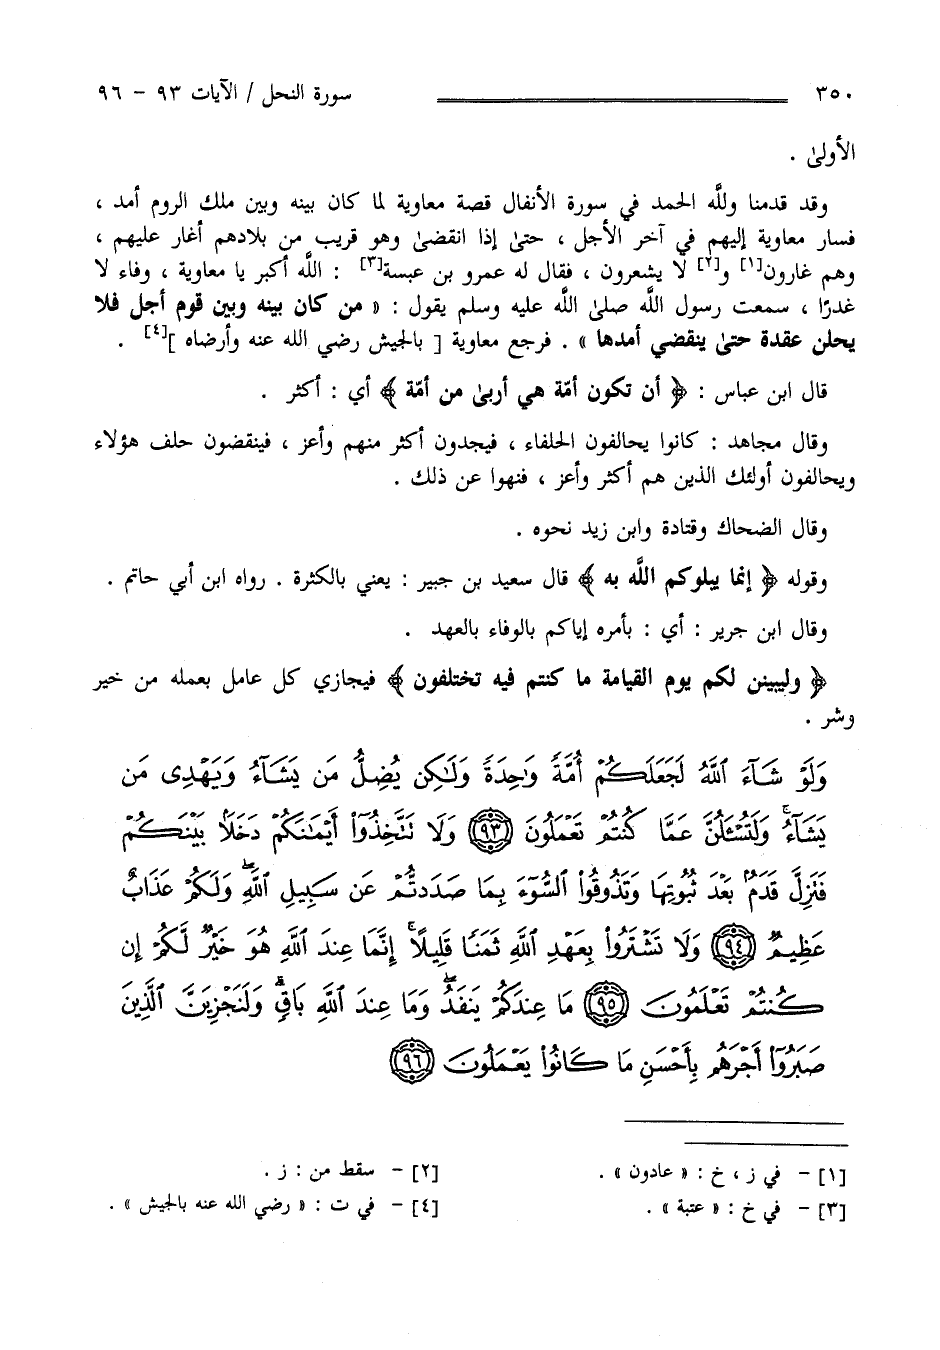 ٣٥٠ سورة النحل / الآيات ٩٣ - ٩٦
الأولىٰ .
وقد قدمنا وللَّه الحمد في سورة الأنفال قصة معاوية لما كان بينه وبين ملك الروم أمد ،
فسار معاوية إليهم في آخر الأجل ، حتىٰ إذا انقضىٰ وهو قريب من بلادهم أغار عليهم ،
وهم غارون[١] و[٢] لا يشعرون ، فقال له عمرو بن عبسة[٣] : اللَّه أكبر يا معاوية ، وفاء لا
غدرًا ، سمعت رسول اللَّه صلىٰ اللَّه عليه وسلم يقول : « من كان بينه وبين قوم أجل فلا
يحلن عقدة حتىٰ ينقضي أمدها » . فرجع معاوية [ بالجيش رضي الله عنه وأرضاه ][٤] .
قال ابن عباس : ﴿ أن تكون أمّة هي أربىٰ من أمّة ﴾ أي : أكثر .
وقال مجاهد : كانوا يحالفون الحلفاء ، فيجدون أكثر منهم وأعز ، فينقضون حلف هؤلاء
ويحالفون أولئك الذين هم أكثر وأعز ، فنهوا عن ذلك .
وقال الضحاك وقتادة وابن زيد نحوه .
وقوله ﴿ إنما يبلوكم اللَّه به ﴾ قال سعيد بن جبير : يعني بالكثرة . رواه ابن أبي حاتم .
وقال ابن جرير : أي : بأمره إياكم بالوفاء بالعهد .
﴿ وليبينن لكم يوم القيامة ما كنتم فيه تختلفون ﴾ فيجازي كل عامل بعمله من خير
وشر .
وَلَوْ شَآءَ ٱللَّهُ لَجَعَلَكُمْ أُمَّةً وَٰحِدَةً وَلَٰكِن يُضِلُّ مَن يَشَآءُ وَيَهْدِى مَن
يَشَآءُ ۚ وَلَتُسْـَٔلُنَّ عَمَّا كُنتُمْ تَعْمَلُونَ ﴿٩٣﴾ وَلَا تَتَّخِذُوٓا۟ أَيْمَٰنَكُمْ دَخَلًۢا بَيْنَكُمْ
فَتَزِلَّ قَدَمٌۢ بَعْدَ ثُبُوتِهَا وَتَذُوقُوا۟ ٱلسُّوٓءَ بِمَا صَدَدتُّمْ عَن سَبِيلِ ٱللَّهِ ۖ وَلَكُمْ عَذَابٌ
عَظِيمٌ ﴿٩٤﴾ وَلَا تَشْتَرُوا۟ بِعَهْدِ ٱللَّهِ ثَمَنًا قَلِيلًا ۚ إِنَّمَا عِندَ ٱللَّهِ هُوَ خَيْرٌ لَّكُمْ إِن
كُنتُمْ تَعْلَمُونَ ﴿٩٥﴾ مَا عِندَكُمْ يَنفَدُ ۖ وَمَا عِندَ ٱللَّهِ بَاقٍ ۗ وَلَنَجْزِيَنَّ ٱلَّذِينَ
صَبَرُوٓا۟ أَجْرَهُم بِأَحْسَنِ مَا كَانُوا۟ يَعْمَلُونَ ﴿٩٦﴾
[١] - في ز ، خ : « عادون » . [٢] - سقط من : ز .
[٣] - في خ : « عتبة » . [٤] - في ت : « رضي الله عنه بالجيش » .